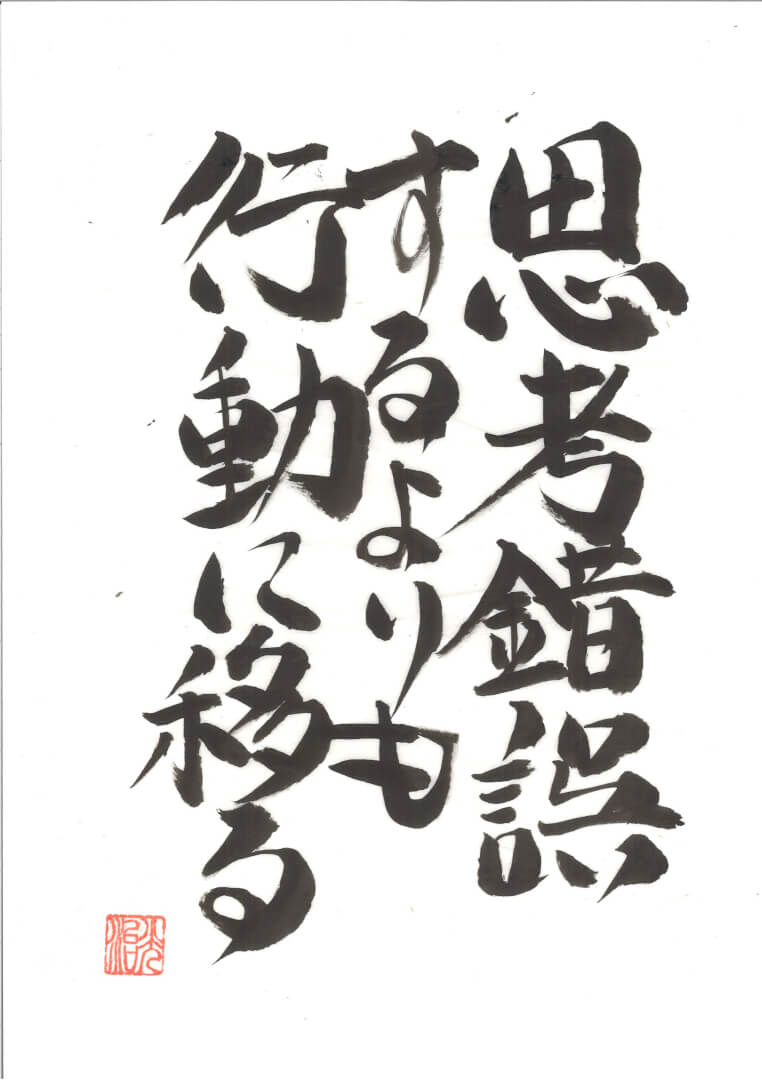 思考錯誤
するよりも
行動に移る